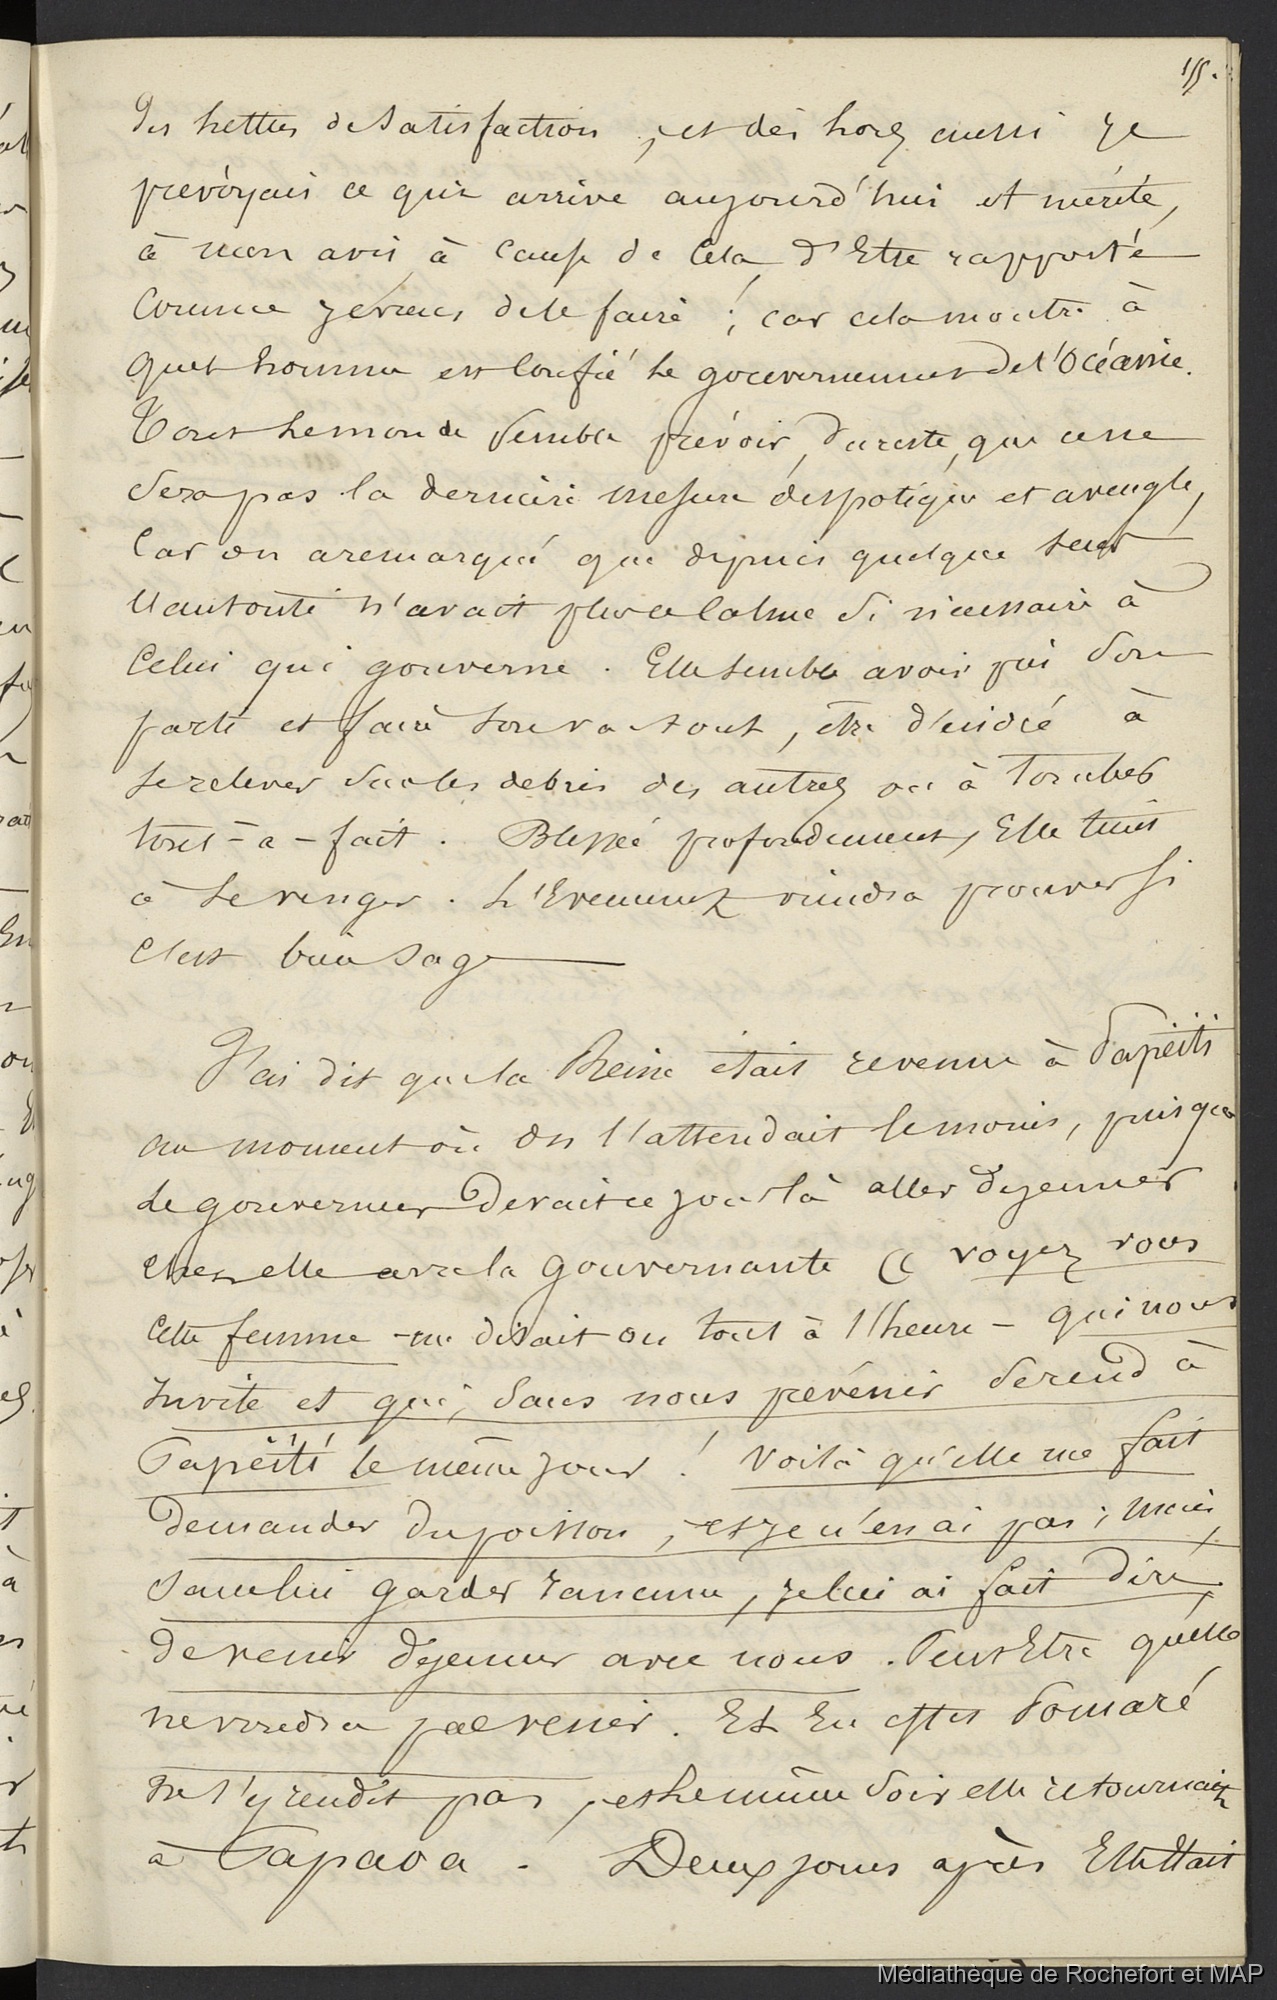 115.
des lettres de satisfaction, et dès lors aussi je
prévoyais ce qui arrive aujourd'hui et mérite,
à mon avis à cause de cela, d'Etre rapporté
comme je viens de le faire ; car cela montre à
quel homme est confié le gouvernement de l'Océanie.
Tout le monde semble prévoir, du reste, que ce ne
sera pas la dernière mesure despotique et aveugle,
car on a remarqué que depuis quelque temps
l'autorité n'avait plus ce calme si nécessaire à
celui qui gouverne. Elle semble avoir pris son
parti et faire son va-tout, être décidé à
se relever sur les debris des autres ou à tomber
tout-à-fait. Blessée profondement, Elle tient
à se venger. L'Evenement viendra prouver si
c'est bien sage
J'ai dit que la Reine était revenue à Papeïti
au moment où on l'attendait le moins, puisque
le gouverneur devait ce jour là aller déjeuner
chez elle avec la gouvernante « voyez vous
cette femme - me disait on tout à l'heure - qui nous
invite et qui, sans nous prévenir se rend à
Papéïti le même jour ! Voilà qu'elle me fait
demander du poisson, et je n'en ai pas ; mais,
sans lui garder rancune, je lui ai fait dire,
de venir déjeuner avec nous. Peut Etre qu'elle
ne voudra pas venir. Et En effet Pomaré
ne s'y rendit pas, et le même soir elle retournait
à Papaoa. Deux jours après Elle était
Médiathèque de Rochefort et MAP